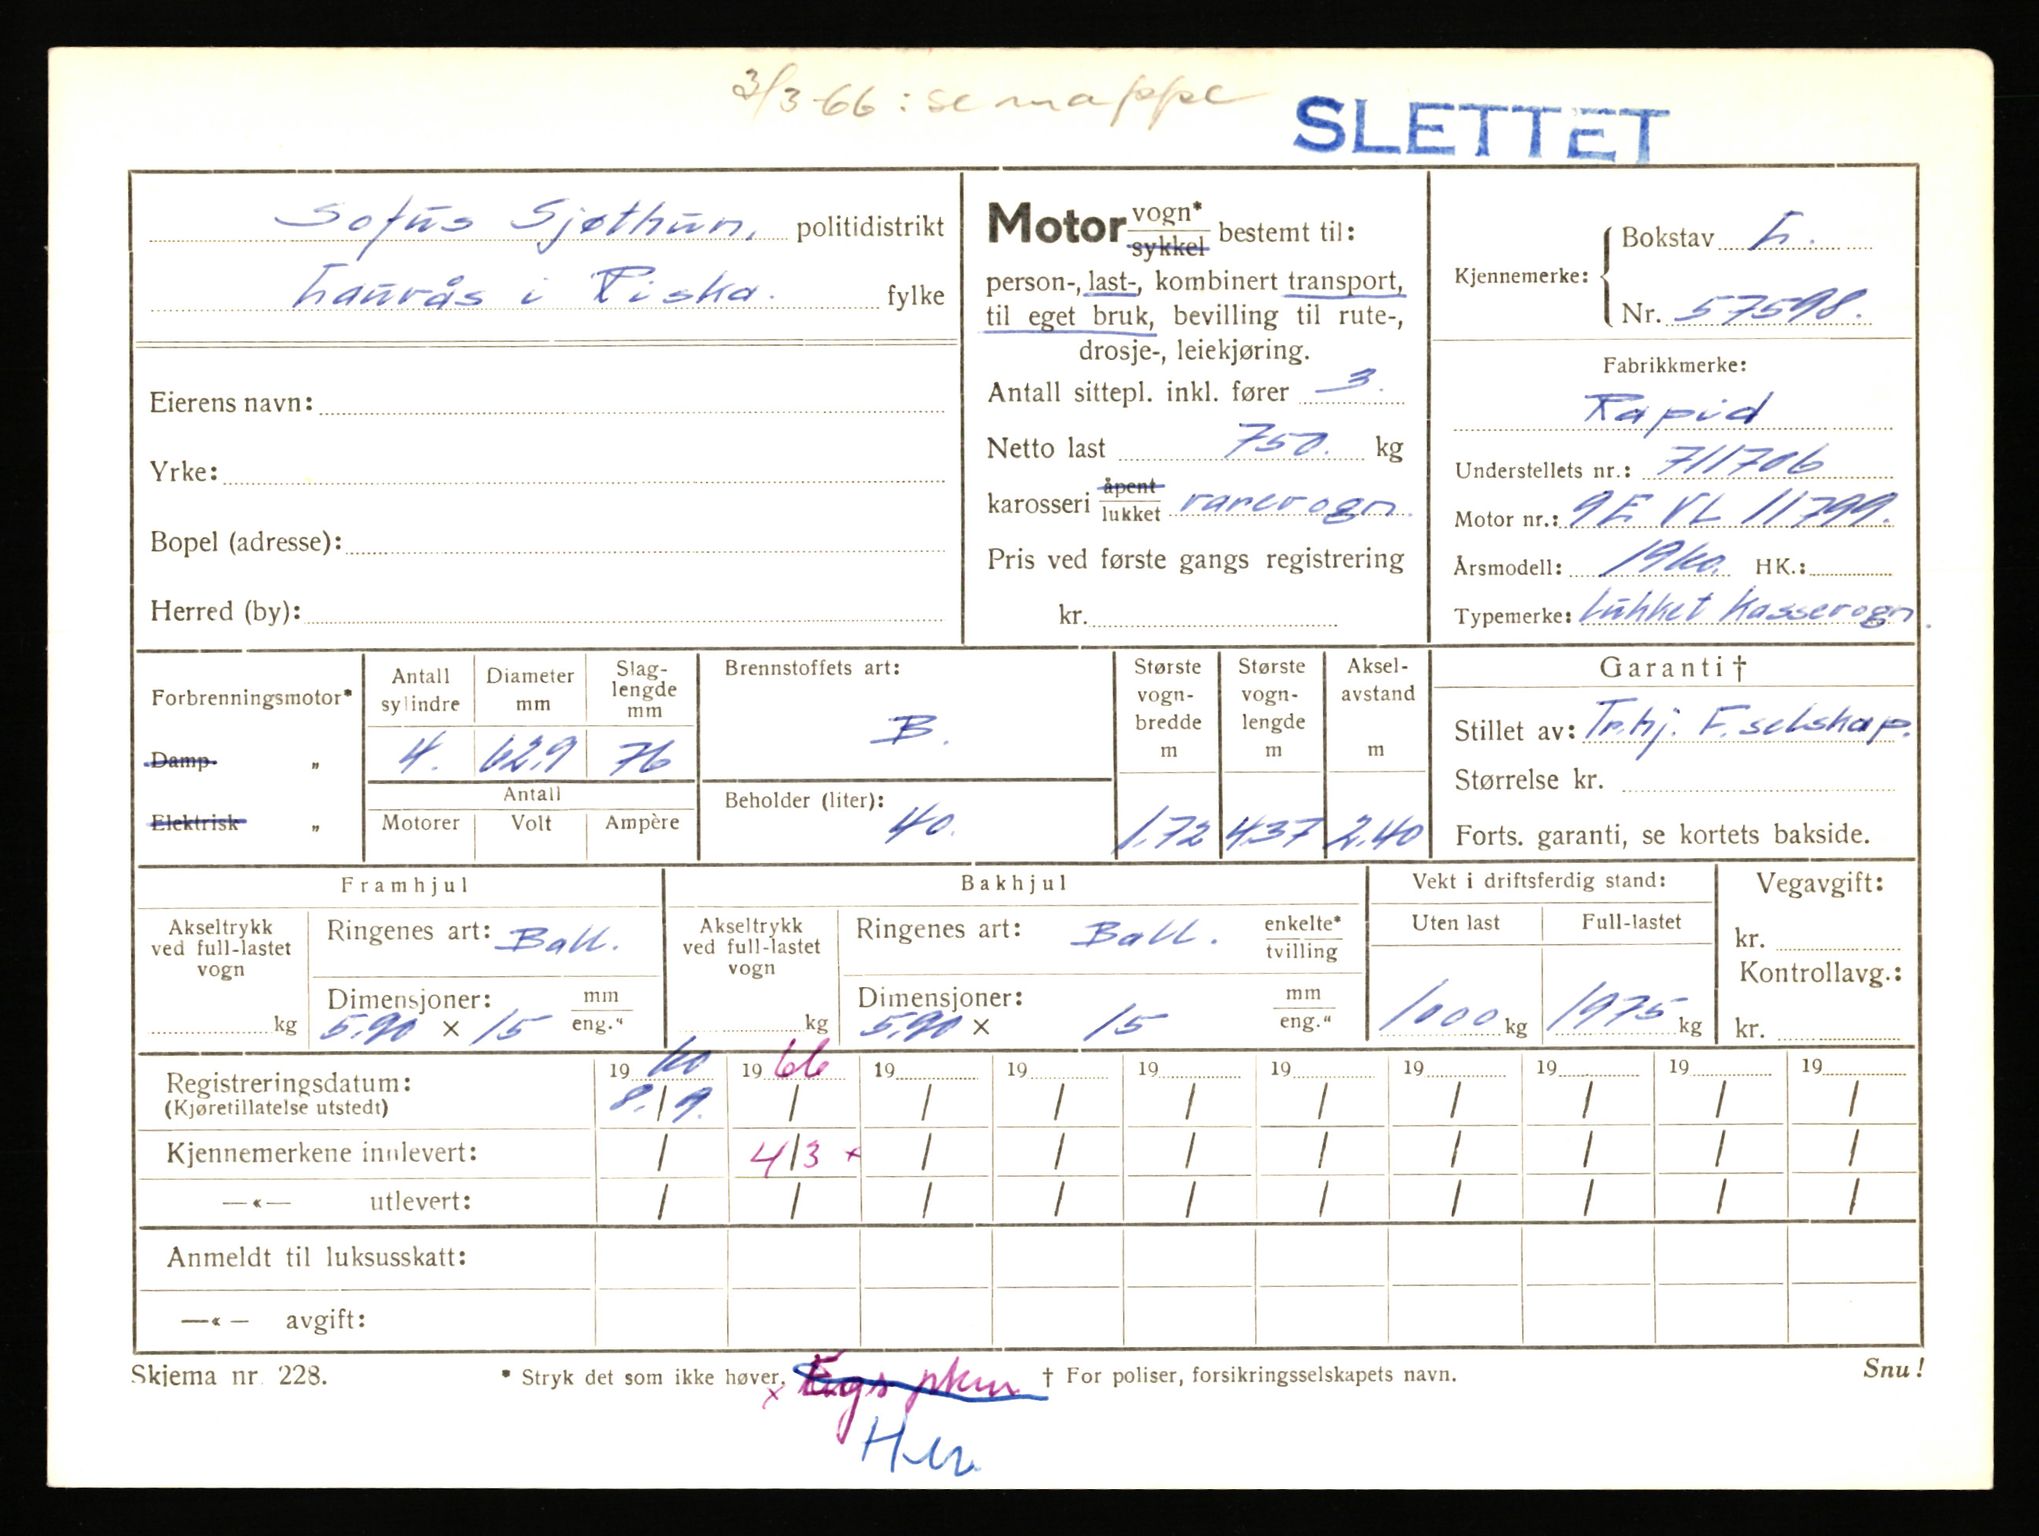 3/3-66: se mappe
SLETTET
Sofus Sjøthun, politidistrikt
i Riska. fylke
Eierens navn:
Yrke:
Bopel (adresse):
Herred (by):
Motor vogn*
sykkel bestemt til:
person-, last-, kombinert transport,
til eget bruk, bevilling til rute-,
drosje-, leiekjøring.
Antall sittepl. inkl. fører 3.
Netto last 750. kg
karosseri åpent
lukket varevogn
Pris ved første gangs registrering
kr.
Kjennemerke: Bokstav L.
Nr. 57598.
Fabrikkmerke:
Rapid
Understellets nr.: 711706
Motor nr.: 9E VL 11799.
Årsmodell: 1960. HK.:
Typemerke: Lukket Kassevogn.
Forbrenningsmotor*
Damp „
Elektrisk „
Antall sylindre
4.
Diameter mm
62.9
Slag-
lengde
mm
76
Antall
Motorer Volt Ampère
Brennstoffets art:
B.
Beholder (liter):
40.
Største
vogn-
bredde
m
1.72
Største
vogn-
lengde
m
4.37
Aksel-
avstand
m
2.40
Garanti †
Stillet av: Tr.hj. F.selskap.
Størrelse kr.
Forts. garanti, se kortets bakside.
Framhjul
Akseltrykk
ved full-lastet
vogn
kg
Ringenes art: Ball.
Dimensjoner: mm
5.90 × 15 eng."
Bakhjul
Akseltrykk
ved full-lastet
vogn
kg
Ringenes art: Ball. enkelte*
tvilling
Dimensjoner: mm
5.90 × 15 eng."
Vekt i driftsferdig stand:
Uten last Full-lastet
1000 kg 1975 kg
Vegavgift:
kr.
Kontrollavg.:
kr.
Registreringsdatum: 19 60 19 66 19 19 19 19 19 19 19 19
(Kjøretillatelse utstedt) 8. / 9. / / / / / / / / /
Kjennemerkene innlevert: / 4/3 × / / / / / / / /
—«— utlevert: / / / / / / / / / /
Anmeldt til luksusskatt:
—«— avgift:
Skjema nr. 228. * Stryk det som ikke høver. † For poliser, forsikringsselskapets navn. Snu!
×